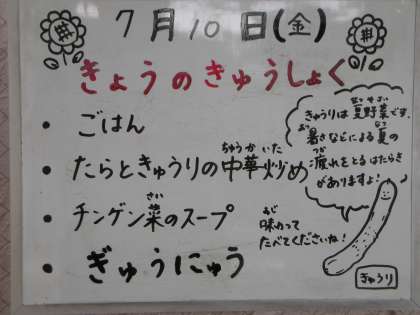 7月10日(金)
きょうのきゅうしょく
• ごはん
• たらときゅうりの中華炒め
ちゅうかいた
• チンゲン菜のスープ
さい
• ぎゅうにゅう
きゅうりは夏野菜です。
なつやさい
暑さなどによる夏の
あつ なつ
疲れをとるはたらき
つか
がありますよ!
味わって
あじ
たべてくださいね!
きゅうり